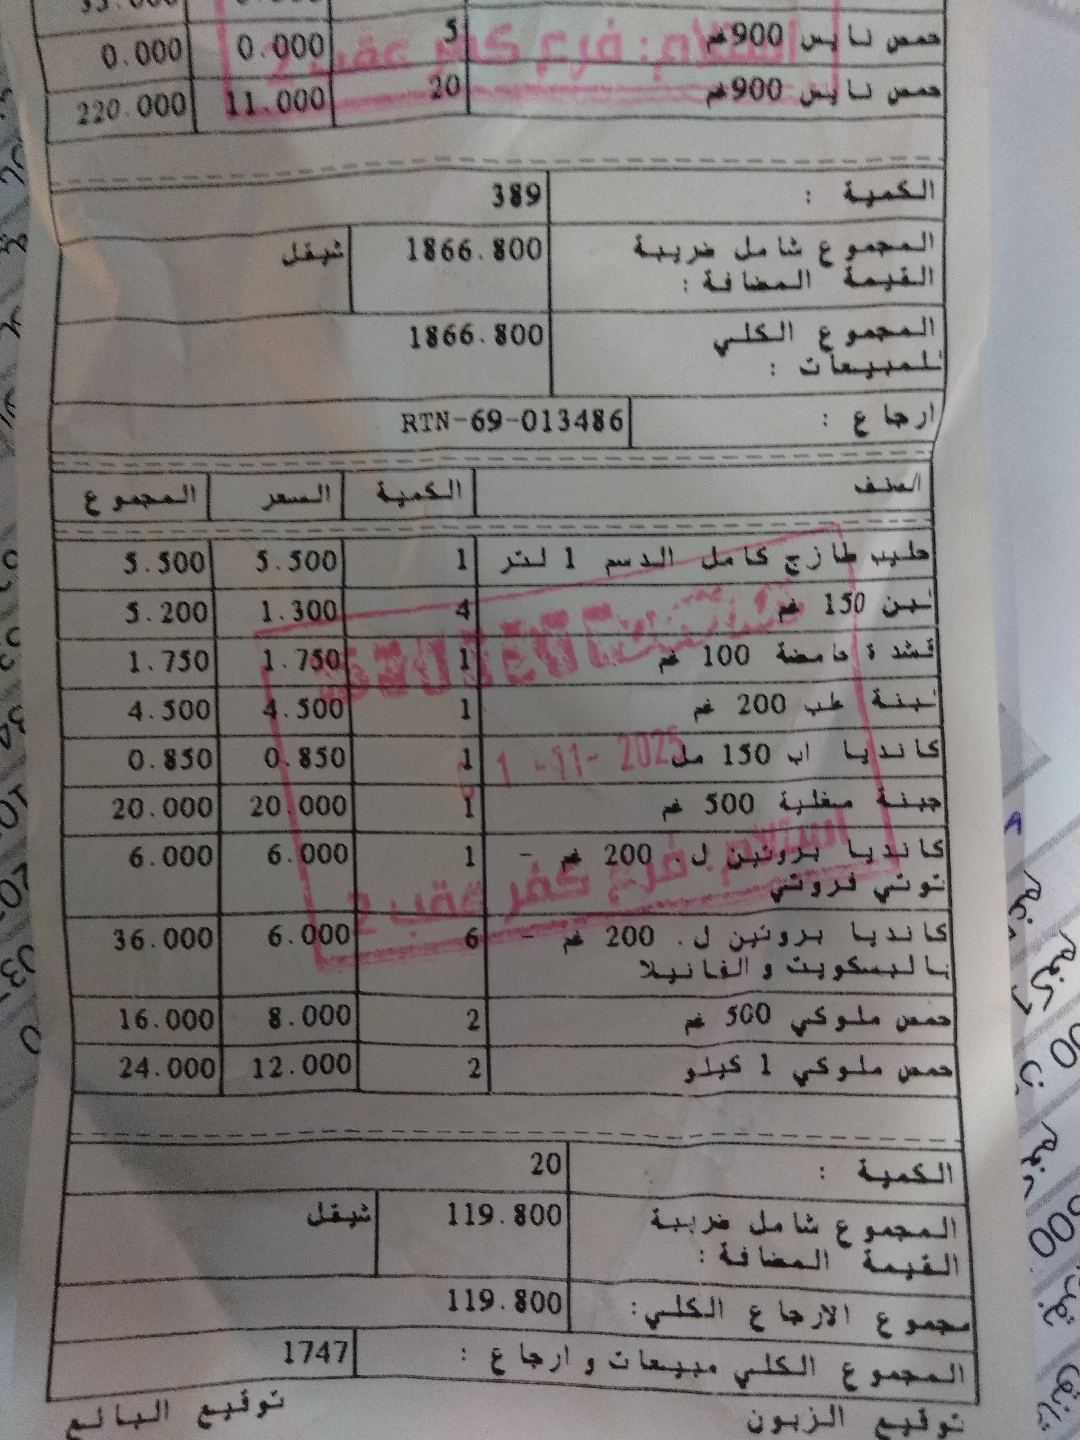 حمص نايس 900غم 5 0.000 0.000
حمص نايس 900غم 20 11.000 220.000
الكمية : 389
المجموع شامل ضريبة 1866.800 شيقل
القيمة المضافة :
المجموع الكلي 1866.800
للمبيعات :
ارجاع : RTN-69-013486
الصنف الكمية السعر المجموع
حليب طازج كامل الدسم 1 لتر 1 5.500 5.500
لبن 150 غم 4 1.300 5.200
قشدة حامضة 100 غم 1 1.750 1.750
لبنة طب 200 غم 1 4.500 4.500
كانديا اب 150 مل 1 0.850 0.850
جبنة مغلية 500 غم 1 20.000 20.000
كانديا بروتين ل. 200 غم - 1 6.000 6.000
توتي فروتي
كانديا بروتين ل. 200 غم - 6 6.000 36.000
بالبسكويت والفانيلا
حمص ملوكي 500 غم 2 8.000 16.000
حمص ملوكي 1 كيلو 2 12.000 24.000
1 -11- 2025
استلام: فرع كفر عقب 2
الكمية : 20
المجموع شامل ضريبة 119.800 شيقل
القيمة المضافة :
مجموع الارجاع الكلي: 119.800
المجموع الكلي مبيعات و ارجاع : 1747
توقيع الزبون توقيع البائع